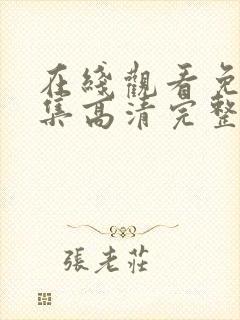 在綫觀看免
集高清完整
張老莊